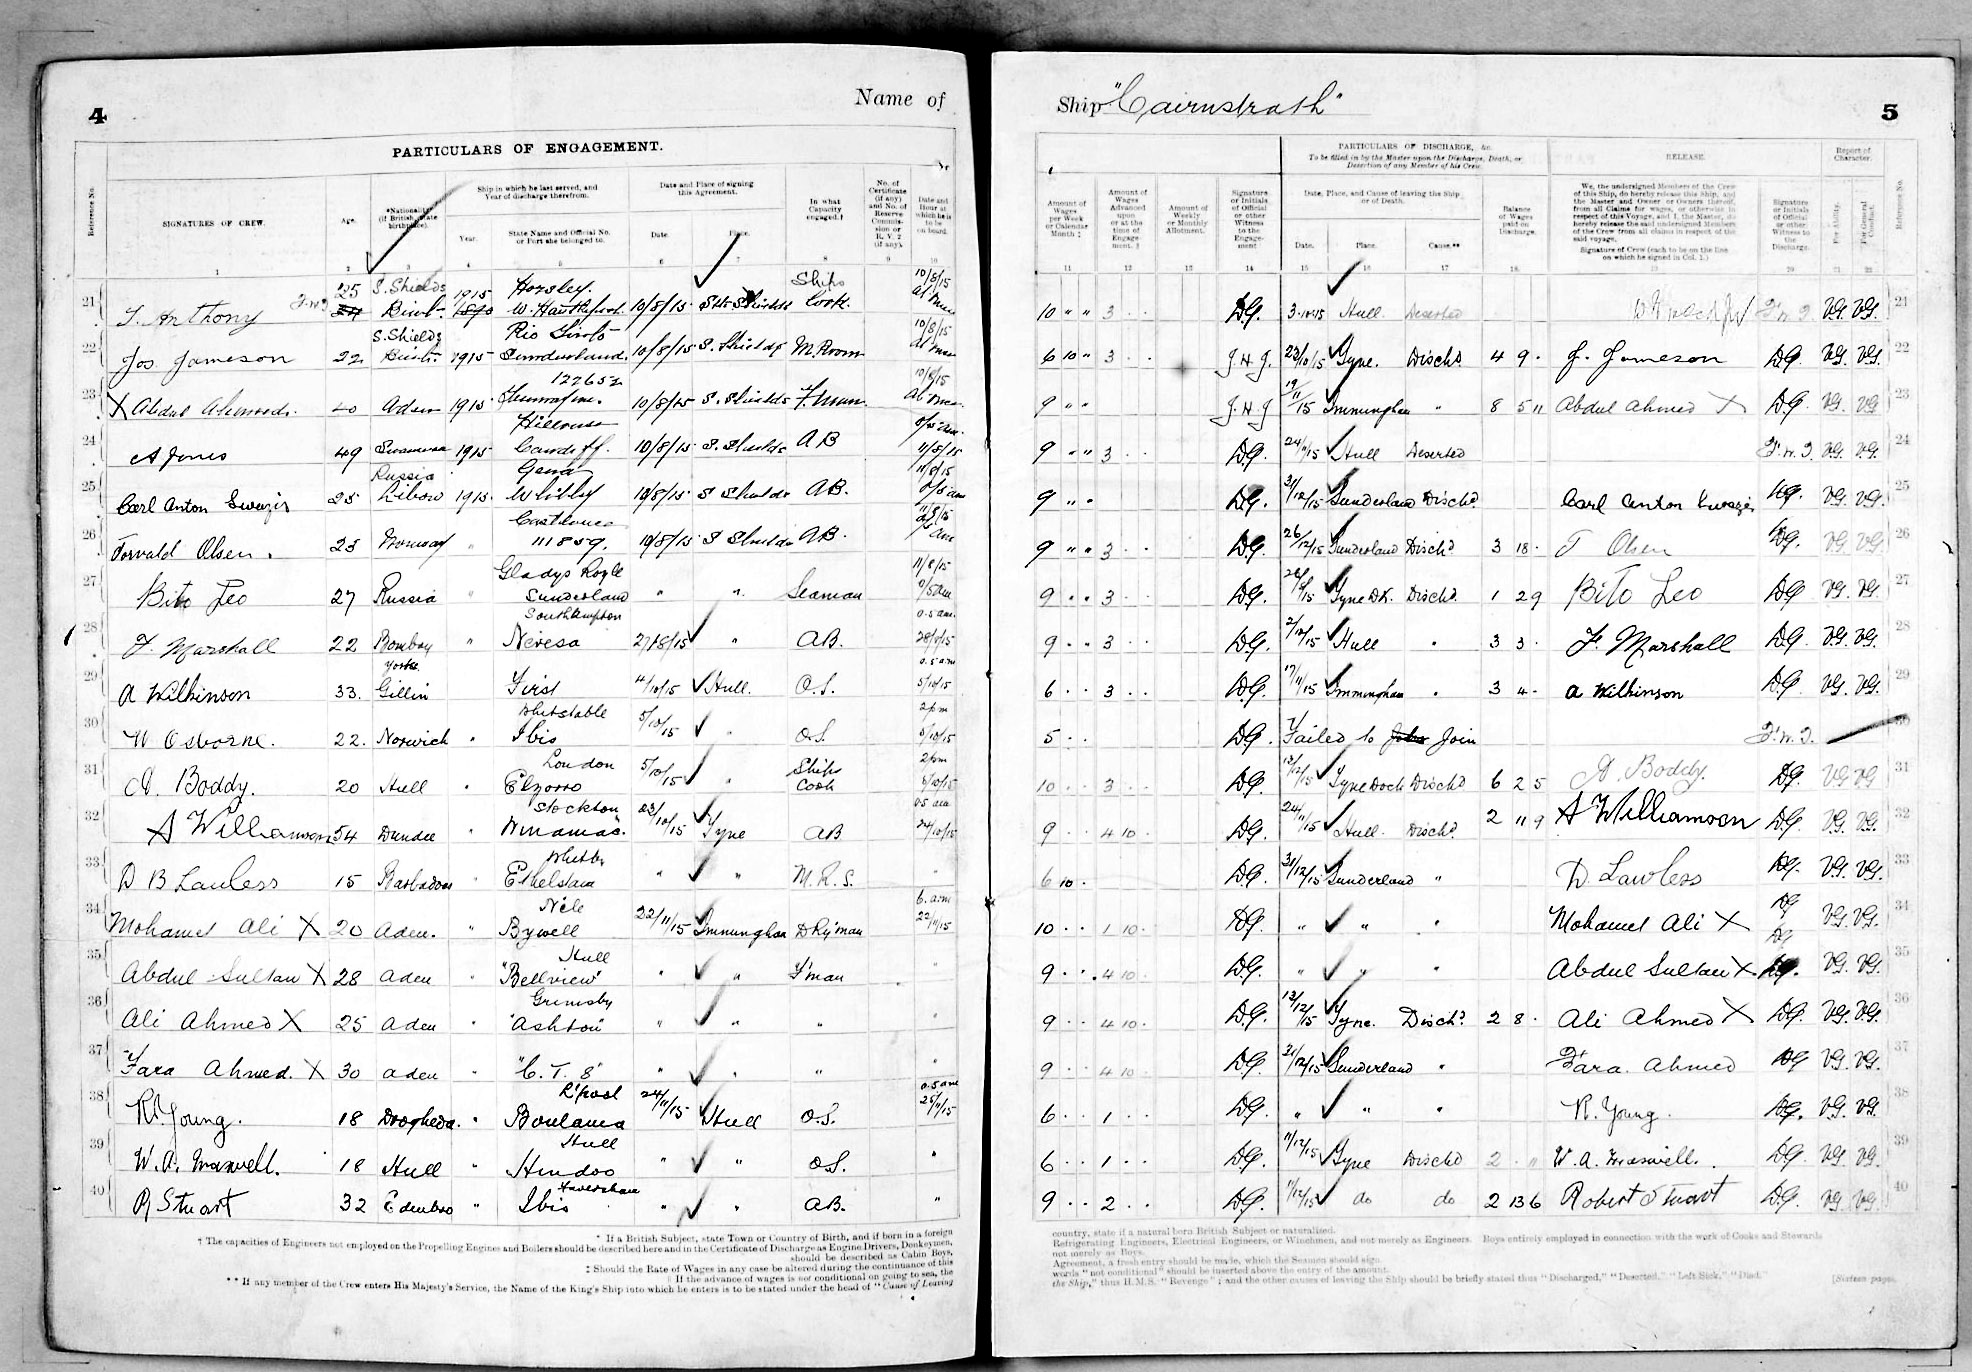 4
Name of
PARTICULARS OF ENGAGEMENT.
Reference No.
SIGNATURES OF CREW.
Age.
*Nationality (if British, state birthplace).
Ship in which he last served, and Year of discharge therefrom.
Year.
State Name and Official No. or Port she belonged to.
Date and Place of signing this Agreement.
Date.
Place.
In what Capacity engaged.†
No. of Certificate (if any) and No. of Reserve Commission or R. V. 2 (if any).
Date and Hour at which he is to be on board.
1 2 3 4 5 6 7 8 9 10
21 J. Anthony 25 S. Shields 1915 Horsley. W. Hartlepool 10/8/15 Sth Shields Ships Cook 10/8/15
22 Jos. Jameson 22 S. Shields 1915 Sunderland 10/8/15 S. Shields M. Room 10/8/15
23 X Abdul Ahmed 40 Aden 1915 10/8/15 S. Shields F.man 10/8/15
24 A Jones 49 Swansea 1915 Cardiff. 10/8/15 S. Shields AB 11/8/15
25 Carl Anton Russia Libau 1915 Whitby 10/8/15 S Shields AB. 11/8/15
26 Torvald Olsen. 23 Norway " 111859. 10/8/15 S Shields AB.
27 Bito Leo 27 Russia " Gladys Royle Sunderland " " Seaman 11/8/15
28 F. Marshall 22 Bombay " Southampton Nevesa 27/8/15 " AB. 28/8/15
29 A Wilkinson 33. Yorks Gillin First 4/10/15 Hull. O.S. 5/10/15
30 W Osborne. 22. Norwich " Whitstable Ibis 5/10/15 " O.S. 2pm 5/10/15
31 A. Boddy. 20 Hull " London 5/10/15 " Ships Cook 2pm
32 A Williamson 54 Dundee " Stockton 23/10/15 Tyne AB 24/10/15
33 D B Lawless 15 Barbados " Whitby " " M.R.S. "
34 Mohamed Ali X 20 Aden. " Bywell 22/11/15 Immingham Dky'man 6. a.m 22/11/15
35 Abdul Sultan X 28 Aden " Hull "Bellview" " " F'man "
36 Ali Ahmed X 25 Aden " Grimsby "Ashton" " " " "
37 Fara Ahmed. X 30 Aden " "C. T. 8" " " " "
38 R. Young. 18 Drogheda. " L'pool Boulama 24/11/15 Hull O.S. 25/11/15
39 W. A. Maxwell. 18 Hull " Hull Hindoo " " O.S. "
40 R Stuart 32 Edinbro " Faversham Ibis " " AB. "
* If a British Subject, state Town or Country of Birth, and if born in a foreign
† The capacities of Engineers not employed on the Propelling Engines and Boilers should be described here and in the Certificate of Discharge as Engine Drivers, Donkeymen,
should be described as Cabin Boys,
‡ Should the Rate of Wages in any case be altered during the continuance of this
If the advance of wages is not conditional on going to sea, the
** If any member of the Crew enters His Majesty's Service, the Name of the King's Ship into which he enters is to be stated under the head of "Cause of Leaving
Ship "Cairnstrath"
5
PARTICULARS OF DISCHARGE, &c.
To be filled in by the Master upon the Discharge, Death, or Desertion of any Member of his Crew.
RELEASE.
Report of Character.
Amount of Wages per Week or Calendar Month ‡
Amount of Wages Advanced upon or at the time of Engagement. §
Amount of Weekly or Monthly Allotment.
Signature or Initials of Official or other Witness to the Engagement
Date, Place, and Cause of leaving the Ship or of Death.
Date. Place. Cause.**
Balance of Wages paid on Discharge.
We, the undersigned Members of the Crew of this Ship, do hereby release this Ship, and the Master and Owner or Owners thereof, from all Claims for wages, or otherwise in respect of this Voyage, and I, the Master, do hereby release the said undersigned Members of the Crew from all claims in respect of the said voyage.
Signature of Crew (each to be on the line on which he signed in Col. 1.)
Signature or Initials of Official or other Witness to the Discharge.
For Ability.
For General Conduct.
Reference No.
11 12 13 14 15 16 17 18 19 20 21 22
10 " " 3 D.G. 3.10.15 Hull Deserted F.W.J. VG. VG. 21
6 10 " 3 J.H.J. 23/10/15 Tyne. Dischd 4 9 J. Jameson D.G. VG. VG. 22
9 " " J.H.J 19/11/15 Immingham " 8 5 11 Abdul Ahmed X D.G. VG. VG. 23
9 " " 3 D.G. Hull Deserted F.W.J. VG. VG. 24
9 " " D.G. 31/12/15 Sunderland Dischd Carl Anton VG. VG. 25
9 " " 3 D.G. 26/12/15 Sunderland Dischd 3 18 T Olsen D.G. VG. VG. 26
9 " " 3 D.G. Tyne Dk. Dischd 1 2 9 Bito Leo D.G. VG. VG. 27
9 " " 3 D.G. Hull " 3 3 F. Marshall D.G. VG. VG. 28
6 3 D.G. 17/11/15 Immingham " 3 4 A Wilkinson D.G. VG. VG. 29
5 D.G. Failed to Join F.W.J. 30
10 3 D.G. 13/12/15 Tyne Dock Dischd 6 2 5 A. Boddy. D.G. VG VG 31
9 4 10 D.G. 24/11/15 Hull. Dischd 2 11 9 A Williamson D.G. VG. VG. 32
6 10 D.G. 31/12/15 Sunderland " D. Lawless D.G. VG. VG. 33
10 1 10 D.G. " " " Mohamed Ali X D.G. VG. VG. 34
9 4 10 D.G. " " " Abdul Sultan X D.G. VG. VG. 35
9 4 10 D.G. 13/12/15 Tyne. Dischd 2 8 Ali Ahmed X D.G. VG. VG. 36
9 4 10 D.G. 31/12/15 Sunderland " Fara Ahmed D.G. VG. VG. 37
6 1 D.G. " " " R. Young. D.G. VG. VG. 38
6 1 D.G. 11/12/15 Tyne Dischd 2 W. A. Maxwell. D.G. VG. VG. 39
9 2 D.G. 11/12/15 do do 2 13 6 Robert Stuart D.G. VG VG. 40
country, state if a natural born British Subject or naturalised.
Refrigerating Engineers, Electrical Engineers, or Winchmen, and not merely as Engineers. Boys entirely employed in connection with the work of Cooks and Stewards
not merely as Boys.
Agreement, a fresh entry should be made, which the Seamen should sign.
words "not conditional" should be inserted above the entry of the amount.
the Ship," thus H.M.S. "Revenge"; and the other causes of leaving the Ship should be briefly stated thus "Discharged," "Deserted," "Left Sick," "Died."
[Sixteen pages.